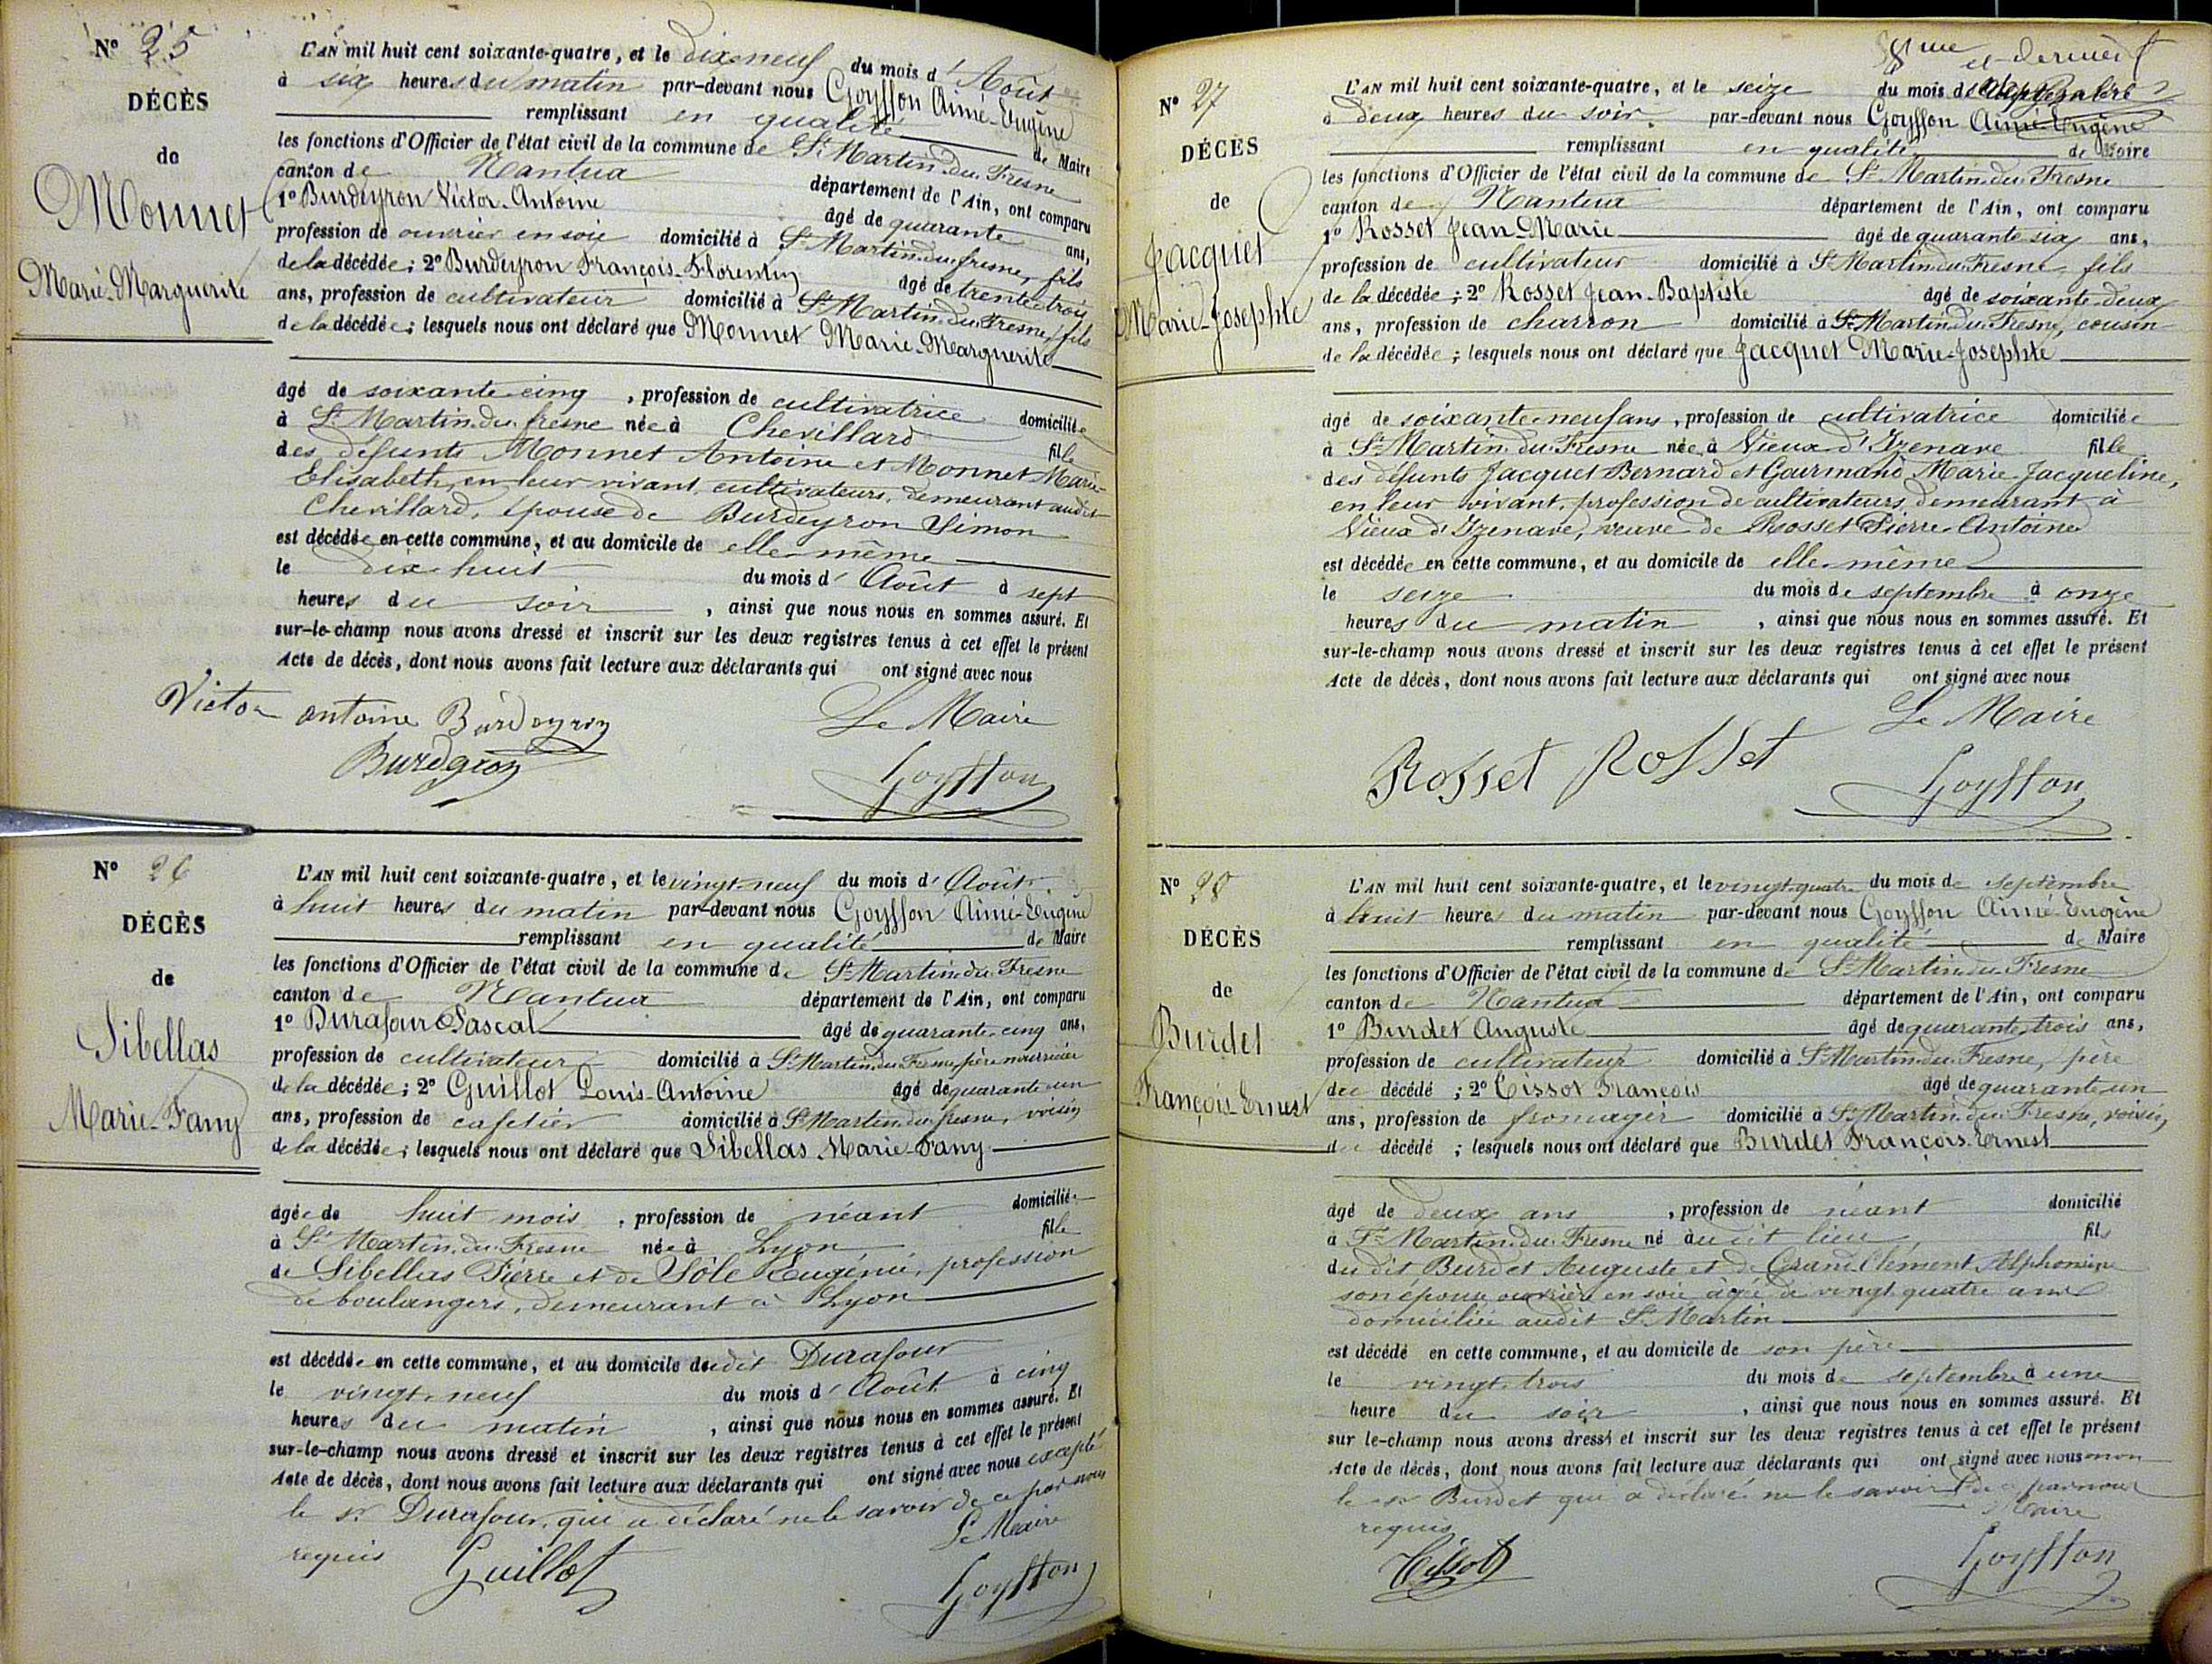 N° 25
DÉCÈS
de
Monnet
Marie-Marguerite
L'AN mil huit cent soixante-quatre, et le dix-neuf du mois d'Août
à six heures du matin par-devant nous Goyffon Aimé-Eugène
remplissant en qualité de Maire
les fonctions d'Officier de l'état civil de la commune de St Martin-du-Fresne
canton de Nantua département de l'Ain, ont comparu
1° Burdeyron Victor-Antoine âgé de quarante ans,
profession de ouvrier en soie domicilié à St Martin-du-fresne, fils
de la décédée; 2° Burdeyron François-Florentin âgé de trente-trois
ans, profession de cultivateur domicilié à St Martin-du-Fresne, fils
de la décédée; lesquels nous ont déclaré que Monnet Marie-Marguerite
âgé de soixante-cinq, profession de cultivatrice domiciliée
à St Martin-du-fresne née à Chevillard fille
des défunts Monnet Antoine et Monnet Marie-
Elisabeth, en leur vivant, cultivateurs, demeurant audit
Chevillard, épouse de Burdeyron Simon
est décédée en cette commune, et au domicile de elle-même
le dix-huit du mois d'Août à sept
heures du soir, ainsi que nous nous en sommes assuré. Et
sur-le-champ nous avons dressé et inscrit sur les deux registres tenus à cet effet le présent
Acte de décès, dont nous avons fait lecture aux déclarants qui ont signé avec nous
Victor antoine Burdeyron Le Maire
Goyffon
N° 26
DÉCÈS
de
Sibellas
Marie-Fany
L'AN mil huit cent soixante-quatre, et le vingt-neuf du mois d'Août
à huit heures du matin par-devant nous Goyffon Aimé-Eugène
remplissant en qualité de Maire
les fonctions d'Officier de l'état civil de la commune de St Martin-du-Fresne
canton de Nantua département de l'Ain, ont comparu
1° Durafour Pascal âgé de quarante-cinq ans,
profession de cultivateur domicilié à St Martin-du-Fresne, père nourricier
de la décédée; 2° Guillot Louis-Antoine âgé de quarante-un
ans, profession de cafetier domicilié à St Martin-du-fresne, voisin
de la décédée; lesquels nous ont déclaré que Sibellas Marie-Fany
âgée de huit mois, profession de néant domiciliée
à St Martin-du-Fresne née à Lyon fille
de Sibellas Pierre et de Sôle Eugénie, profession
de boulangers, demeurant à Lyon
est décédée en cette commune, et au domicile dudit Durafour
le vingt-neuf du mois d'Août à cinq
heures du matin, ainsi que nous nous en sommes assuré. Et
sur-le-champ nous avons dressé et inscrit sur les deux registres tenus à cet effet le présent
Acte de décès, dont nous avons fait lecture aux déclarants qui ont signé avec nous excepté
le sr Durafour, qui a déclaré ne le savoir de ce par nous
requis Le Maire
Guillot Goyffon
8me et dernier
N° 27
DÉCÈS
de
Jacquet
Marie-Josephte
L'AN mil huit cent soixante-quatre, et le seize du mois de septembre
à deux heures du soir par-devant nous Goyffon Aimé-Eugène
remplissant en qualité de Maire
les fonctions d'Officier de l'état civil de la commune de St Martin-du-Fresne
canton de Nantua département de l'Ain, ont comparu
1° Rosset Jean-Marie âgé de quarante-six ans,
profession de cultivateur domicilié à St Martin-du-Fresne, fils
de la décédée; 2° Rosset Jean-Baptiste âgé de soixante-deux
ans, profession de charron domicilié à St Martin-du-Fresne, cousin
de la décédée; lesquels nous ont déclaré que Jacquet Marie-Josephte
âgé de soixante-neuf ans, profession de cultivatrice domiciliée
à St Martin-du-Fresne née à Vieux-d'Izenave fille
des défunts Jacquet Bernard et Gourmand Marie-Jacqueline,
en leur vivant, profession de cultivateurs, demeurant à
Vieux d'Izenave, veuve de Rosset Pierre-Antoine
est décédée en cette commune, et au domicile de elle-même
le seize du mois de septembre à onze
heures du matin, ainsi que nous nous en sommes assuré. Et
sur-le-champ nous avons dressé et inscrit sur les deux registres tenus à cet effet le présent
Acte de décès, dont nous avons fait lecture aux déclarants qui ont signé avec nous
Le Maire
Rosset Rosset Goyffon
N° 28
DÉCÈS
de
Burdet
François-Ernest
L'AN mil huit cent soixante-quatre, et le vingt-quatre du mois de septembre
à huit heures du matin par-devant nous Goyffon Aimé-Eugène
remplissant en qualité de Maire
les fonctions d'Officier de l'état civil de la commune de St Martin-du-Fresne
canton de Nantua département de l'Ain, ont comparu
1° Burdet Auguste âgé de quarante-trois ans,
profession de cultivateur domicilié à St Martin-du-Fresne, père
du décédé; 2° Tissot François âgé de quarante-un
ans, profession de fromager domicilié à St Martin-du-Fresne, voisin
du décédé; lesquels nous ont déclaré que Burdet François-Ernest
âgé de deux ans, profession de néant domicilié
à St Martin-du-Fresne né audit lieu fils
du dit Burdet Auguste et de Grand-Clément Alphonsine
son épouse, ouvrière en soie âgée de vingt-quatre ans
domiciliée audit St Martin
est décédé en cette commune, et au domicile de son père
le vingt-trois du mois de septembre à une
heure du soir, ainsi que nous nous en sommes assuré. Et
sur le-champ nous avons dressé et inscrit sur les deux registres tenus à cet effet le présent
Acte de décès, dont nous avons fait lecture aux déclarants qui ont signé avec nous non
le sr Burdet qui a déclaré ne le savoir de ce par nous
requis Maire
Tissot Goyffon